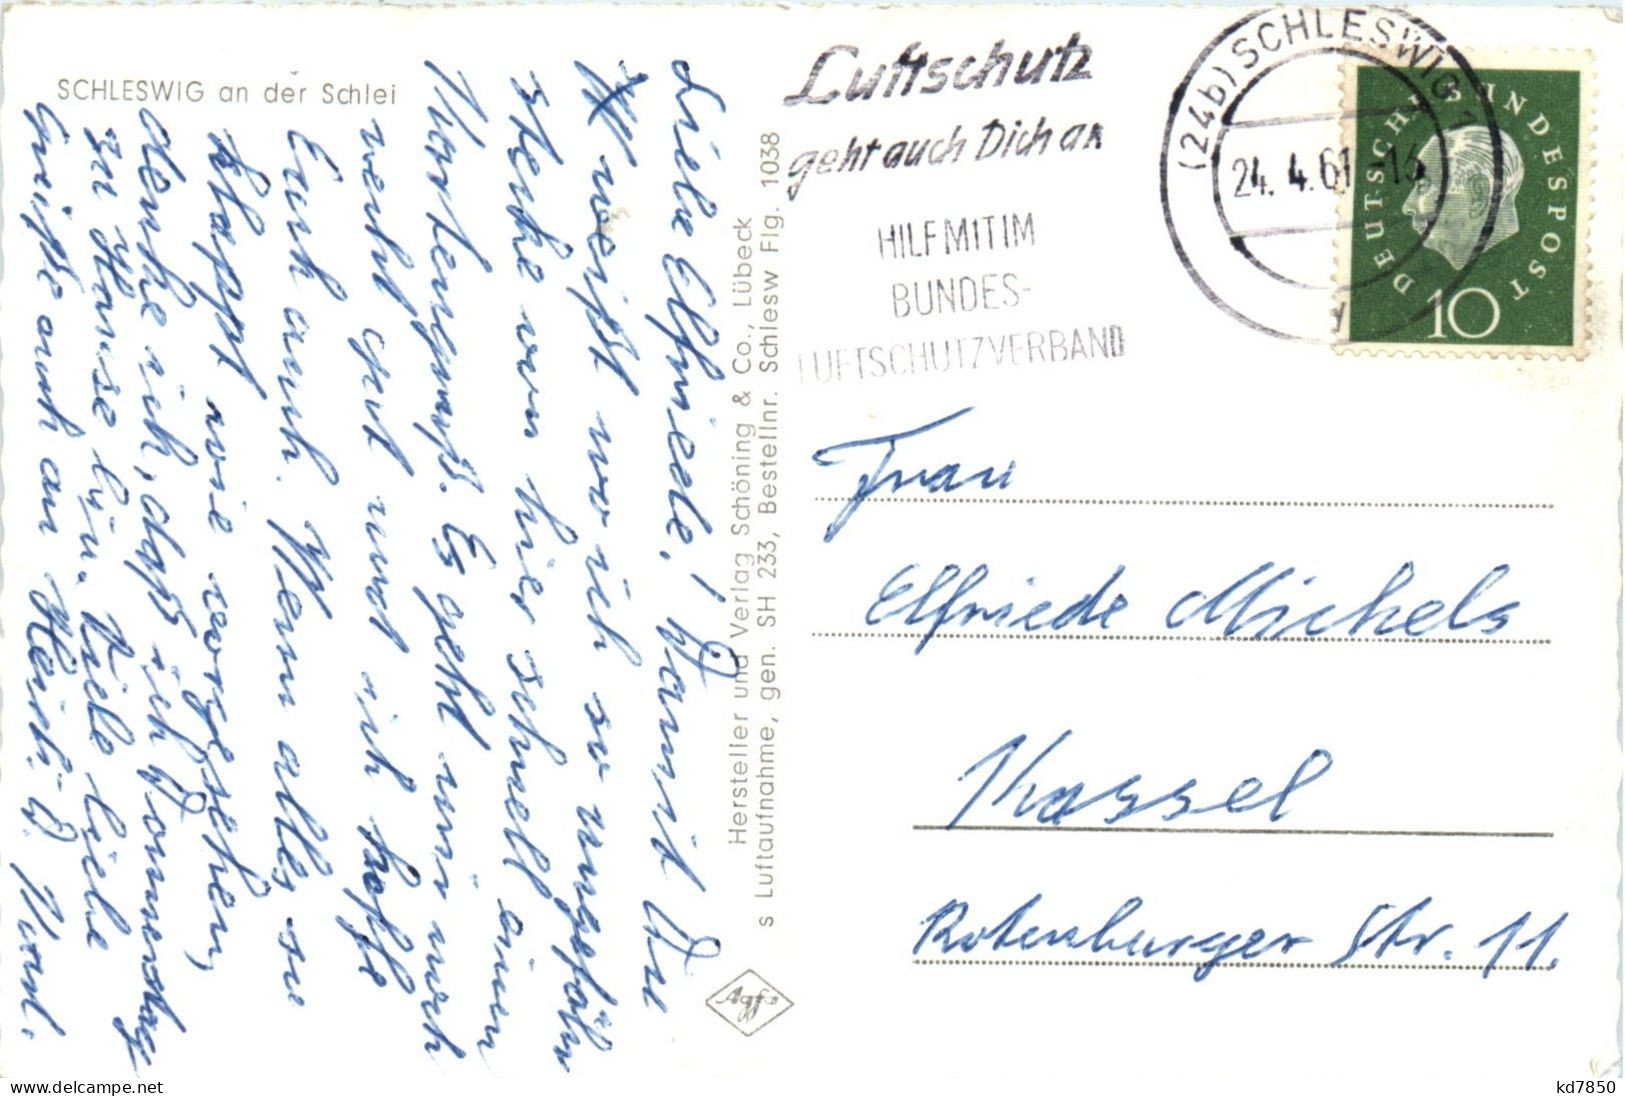 SCHLESWIG an der Schlei
Liebe Elfriede! Damit Du
weißt wo ich so ungefähr
stecke von hier schnell einen
Kartengruß. Es geht mir noch
recht gut und ich hoffe
Euch auch. Wenn alles so
klappt wie vorgesehen,
denke ich, daß ich Donnerstag
zu Hause bin. Viele liebe
Grüße auch an Heidi. D. Karl.
Hersteller und Verlag Schöning & Co., Lübeck
s Luftaufnahme, gen. SH 233, Bestellnr. Schlesw Flg. 1038
Agfa
Luftschutz
geht auch Dich an
HILF MIT IM
BUNDES-
LUFTSCHUTZVERBAND
(24b) SCHLESWIG 1
24. 4. 61 -13
DEUTSCHE BUNDESPOST
10
Frau
Elfriede Michels
Kassel
Rotenburger Str. 11.
kd7850